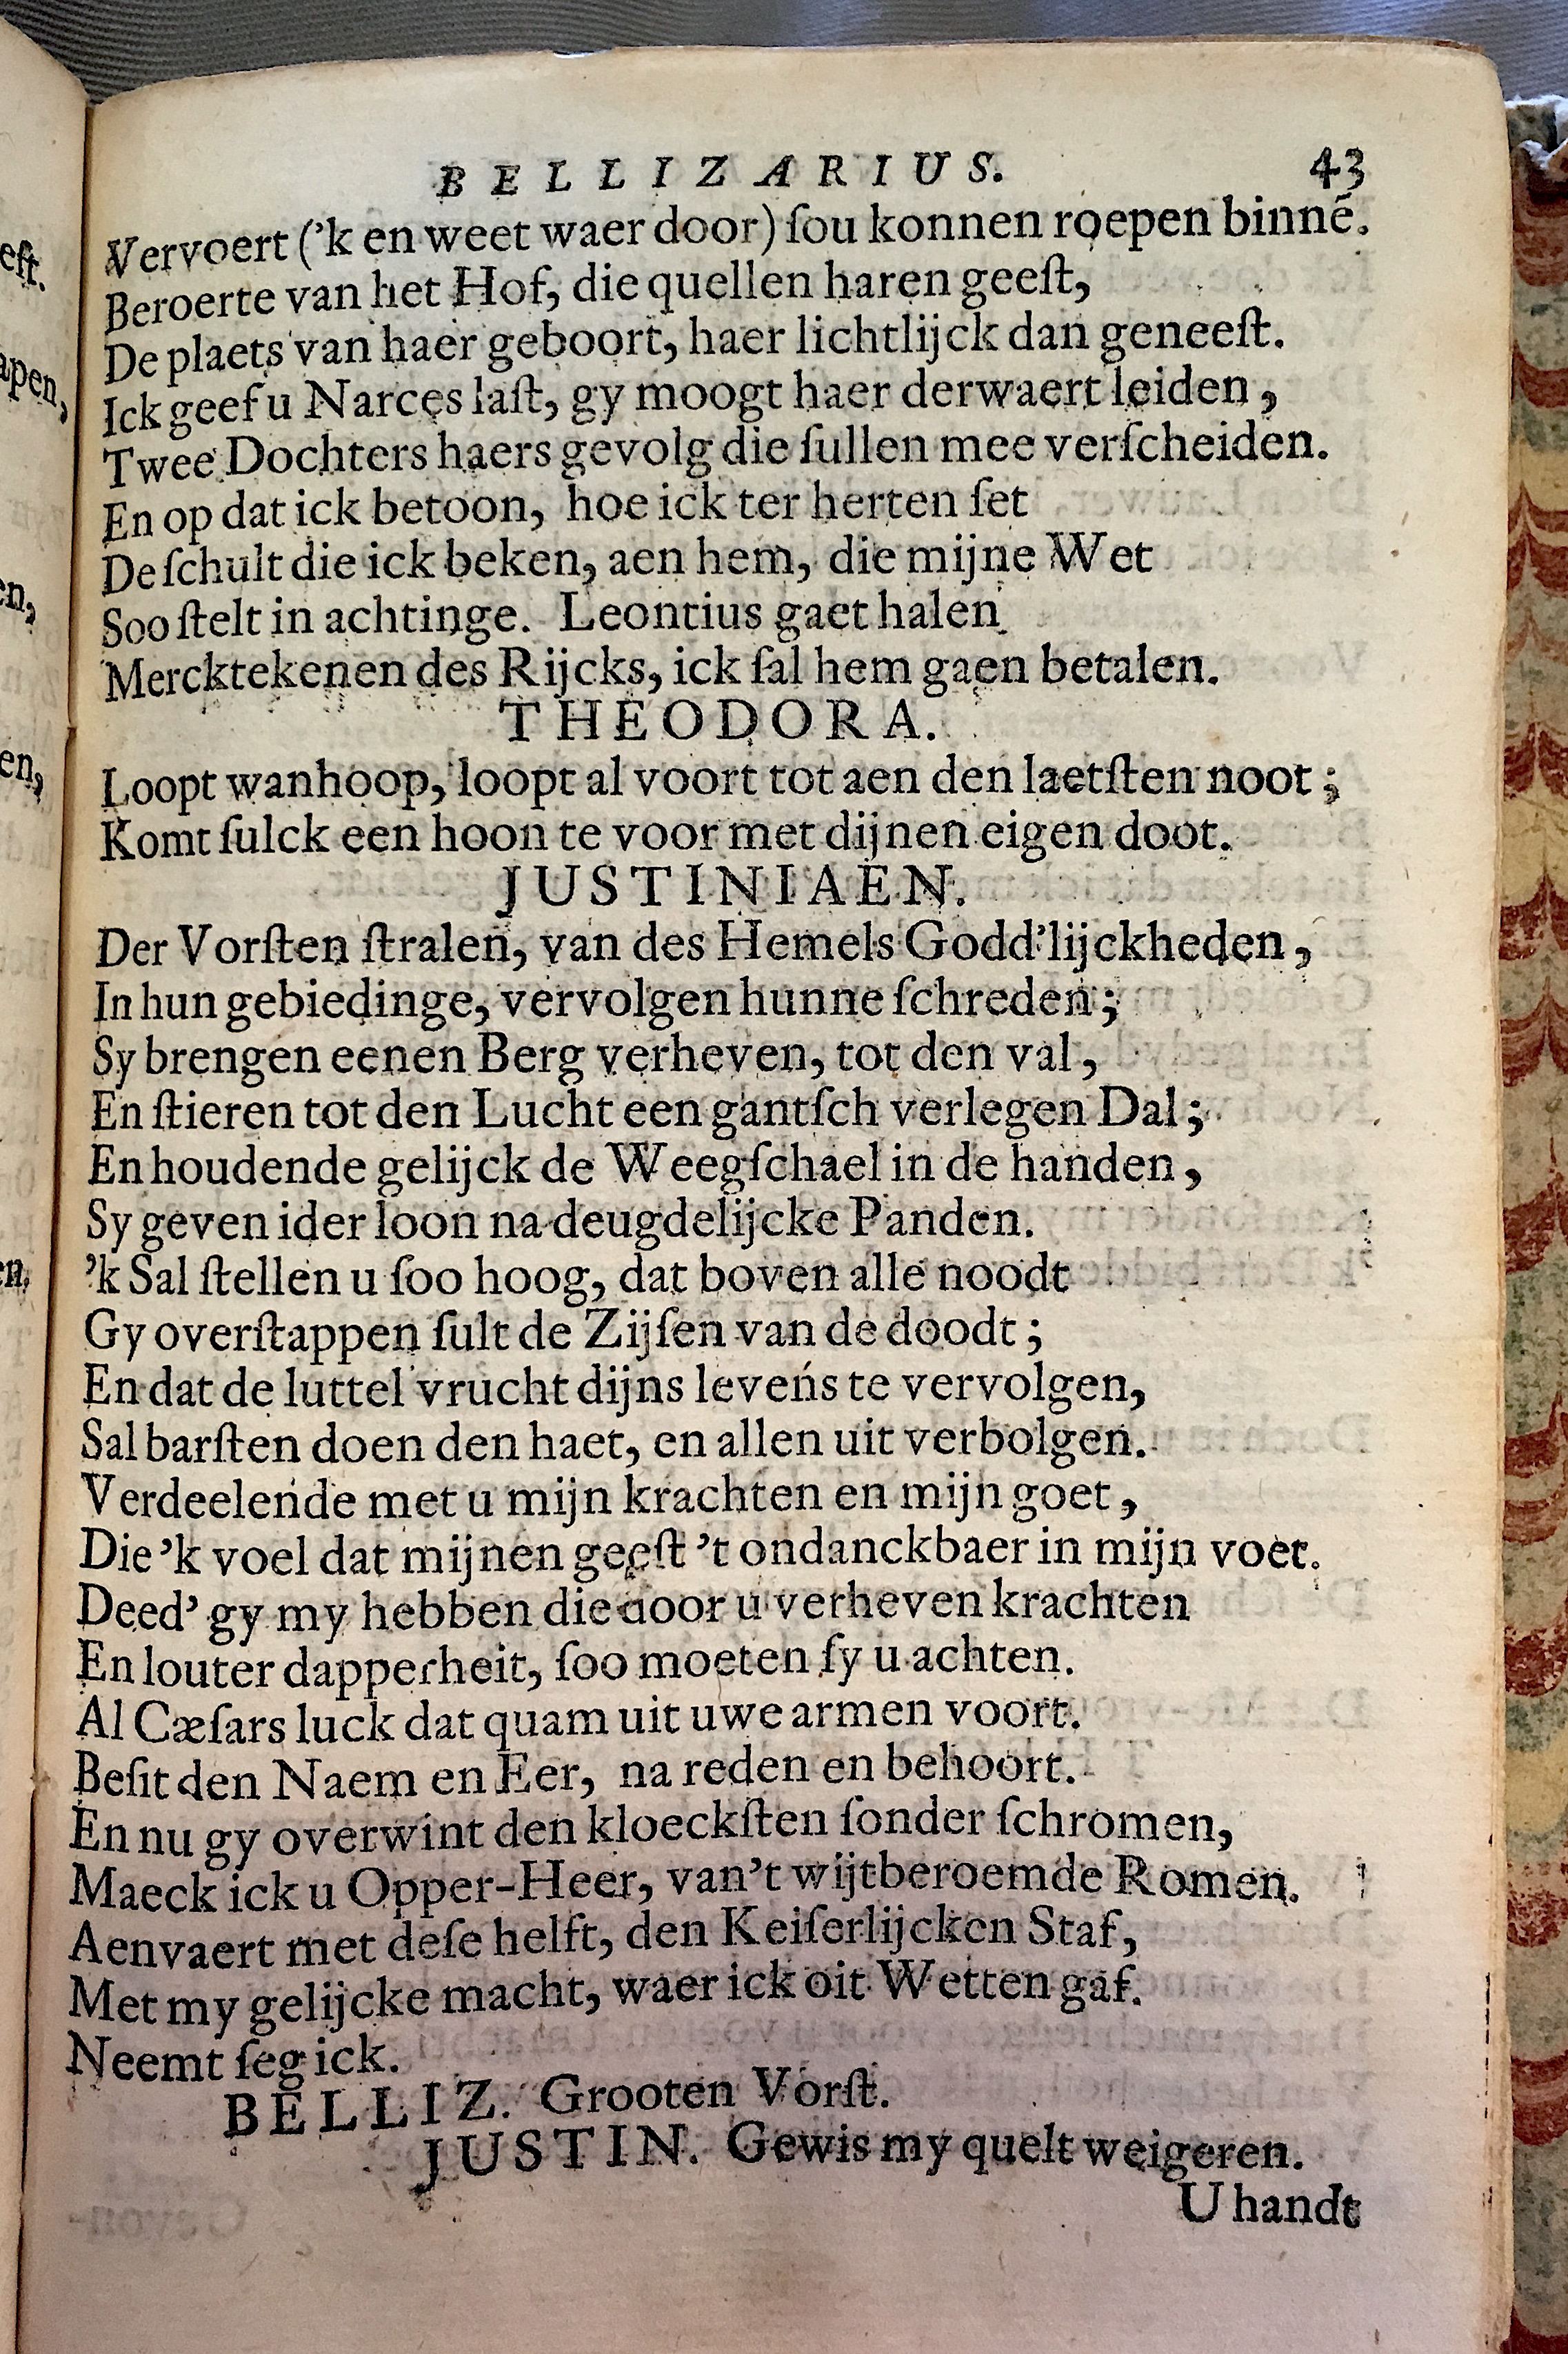 BELLIZARIUS. 43
Vervoert ('k en weet waer door) ſou konnen roepen binnē.
Beroerte van het Hof, die quellen haren geeſt,
De plaets van haer geboort, haer lichtlijck dan geneeſt.
Ick geef u Narces laſt, gy moogt haer derwaert leiden,
Twee Dochters haers gevolg die ſullen mee verſcheiden.
En op dat ick betoon, hoe ick ter herten ſet
De ſchult die ick beken, aen hem, die mijne Wet
Soo ſtelt in achtinge. Leontius gaet halen
Mercktekenen des Rijcks, ick ſal hem gaen betalen.
THEODORA.
Loopt wanhoop, loopt al voort tot aen den laetſten noot;
Komt ſulck een hoon te voor met dijnen eigen doot.
JUSTINIAEN.
Der Vorſten ſtralen, van des Hemels Godd'lijckheden,
In hun gebiedinge, vervolgen hunne ſchreden;
Sy brengen eenen Berg verheven, tot den val,
En ſtieren tot den Lucht een gantſch verlegen Dal;
En houdende gelijck de Weegſchael in de handen,
Sy geven ider loon na deugdelijcke Panden.
'k Sal ſtellen u ſoo hoog, dat boven alle noodt
Gy overſtappen ſult de Zijſen van de doodt;
En dat de luttel vrucht dijns levens te vervolgen,
Sal barſten doen den haet, en allen uit verbolgen.
Verdeelende met u mijn krachten en mijn goet,
Die 'k voel dat mijnen geeſt 't ondanckbaer in mijn voet.
Deed' gy my hebben die door u verheven krachten
En louter dapperheit, ſoo moeten ſy u achten.
Al Cæſars luck dat quam uit uwe armen voort.
Beſit den Naem en Eer, na reden en behoort.
En nu gy overwint den kloeckſten ſonder ſchromen,
Maeck ick u Opper-Heer, van't wijtberoemde Romen.
Aenvaert met deſe helft, den Keiſerlijcken Staf,
Met my gelijcke macht, waer ick oit Wetten gaf.
Neemt ſeg ick.
BELLIZ. Grooten Vorſt.
JUSTIN. Gewis my quelt weigeren.
U handt